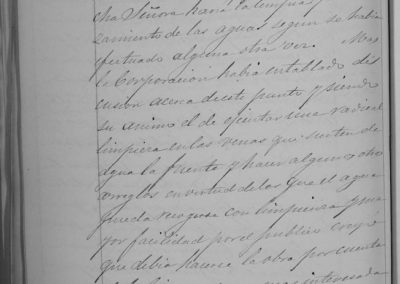 cha Señora haria la limpia y
zamiento de las aguas segun se habia
fectuado alguna otra vez. Mas
la Corporacion habia entablado dis
cusion acerca de este punto y siendo
su animo el de ejecutar una radical
limpieza en las venas que surten de
agua la fuente y hacer algun otro
arreglos en virtud de los que el agua
pueda recogerse con limpieza y ma
yor facilidad por el publico creyó
que debia hacerse la obra por cuenta
interesada